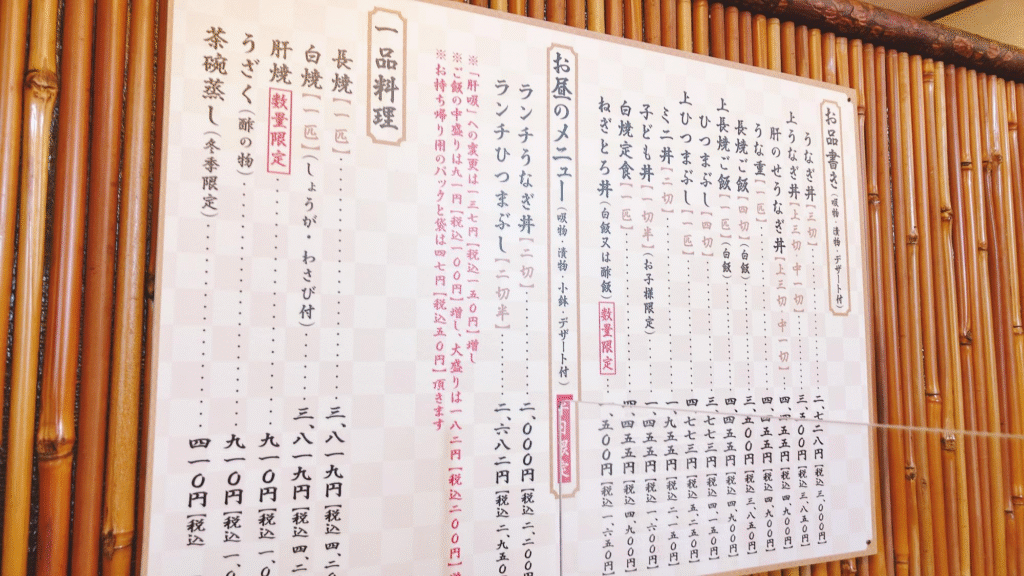 お品書き(吸物・漬物・デザート付)
うなぎ丼[三切]……二、七二八円[税込三、〇〇〇円]
上うなぎ丼[上三切・中一切]……三、五〇〇円[税込三、八五〇円]
肝のせうなぎ丼[上三切・中一切]……四、四五五円[税込四、九〇〇円]
うな重[一匹]……四、四五五円[税込四、九〇〇円]
長焼ご飯[四切](白飯)……三、五〇〇円[税込三、八五〇円]
上長焼ご飯[一匹](白飯)……四、四五五円[税込四、九〇〇円]
ひつまぶし[四切]……三、七七三円[税込四、一五〇円]
上ひつまぶし[一匹]……四、七七三円[税込五、二五〇円]
ミニ丼[二切]……一、九五五円[税込二、一五〇円]
子ども丼[一切半](お子様限定)……一、四五五円[税込一、六〇〇円]
白焼定食[一匹]……四、四五五円[税込四、九〇〇円]
ねぎとろ丼(白飯又は酢飯)数量限定……一、五〇〇円[税込一、六五〇円]
お昼のメニュー(吸物・漬物・小鉢・デザート付)
ランチうなぎ丼[二切]……二、〇〇〇円[税込二、二〇〇円]
ランチひつまぶし[二切半]……二、六八二円[税込二、九五〇円]
※「肝吸」への変更は一三七円[税込一五〇円]増し
※ご飯の中盛りは九一円[税込一〇〇円]増し、大盛りは一八二円[税込二〇〇円]増
※お持ち帰り用のパックと袋は四七円[税込五〇円]頂きます
一品料理
長焼[一匹]……三、八一九円[税込四、二
白焼[一匹](しょうが・わさび付)……三、八一九円[税込四、二
肝焼数量限定……九一〇円[税込一、〇
うざく(酢の物)……九一〇円[税込一、〇
茶碗蒸し(冬季限定)……四一〇円[税込